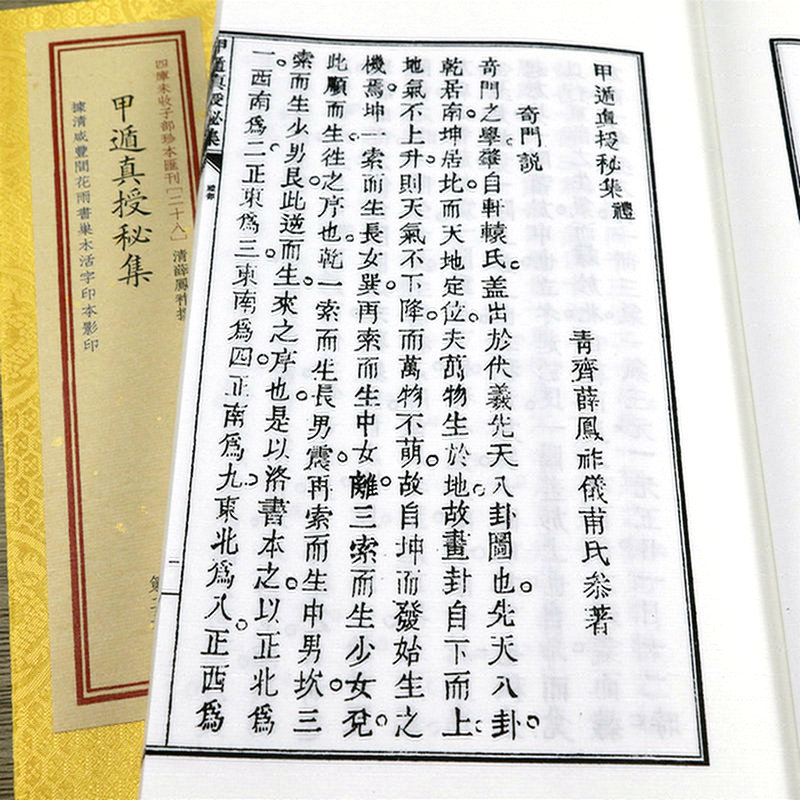 甲遁眞授秘集禮
青齊薛鳳祚儀甫氏叅著
奇門説
奇門之學。肇自軒轅氏。蓋出於伏羲先天八卦圖也。先天八卦。
乾居南。坤居北。而天地定位。夫萬物生於地。故畫卦自下而上。
地氣不上升。則天氣不下降。而萬物不萌。故自坤而發始生之
機焉。坤一索而生長女巽。再索而生中女。離三索而生少女兌。
此順而生往之序也。乾一索而生長男震。再索而生中男坎。三
索而生少男艮。此逆而生來之序也。是以洛書本之。以正北爲
一。西南爲二。正東爲三。東南爲四。正南爲九。東北爲八。正西爲
甲遁眞授秘集
二
四庫未收子部珍本匯刊[二十八] 清薛鳳祚撰
甲遁真授秘集
據清咸豐間花雨書巢木活字印本影印